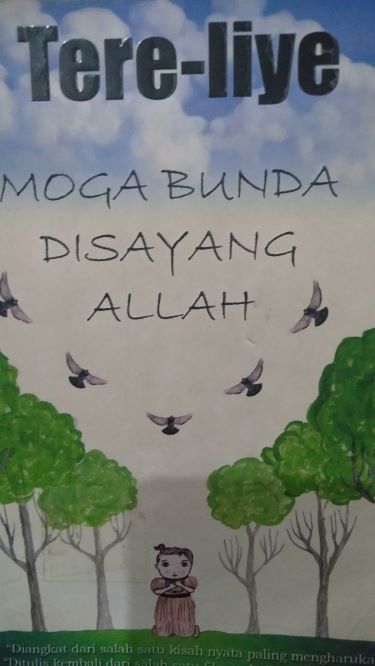 Tere-liye
MOGA BUNDA
DISAYANG
ALLAH
"Diangkat dari salah satu kisah nyata paling mengharuka
"Ditulis kembali dari salah satu